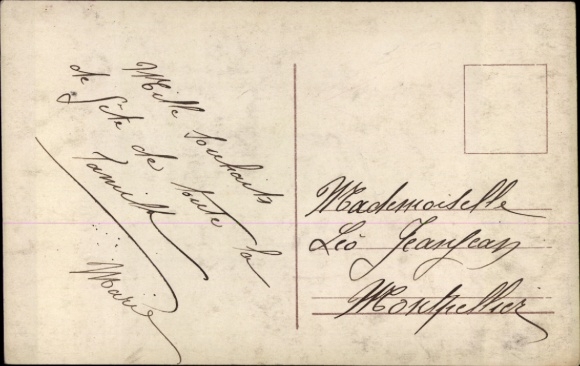 Mille souhaits
de fête de toute la
famille
Marie
Mademoiselle
Léo Jeanjean
Montpellier